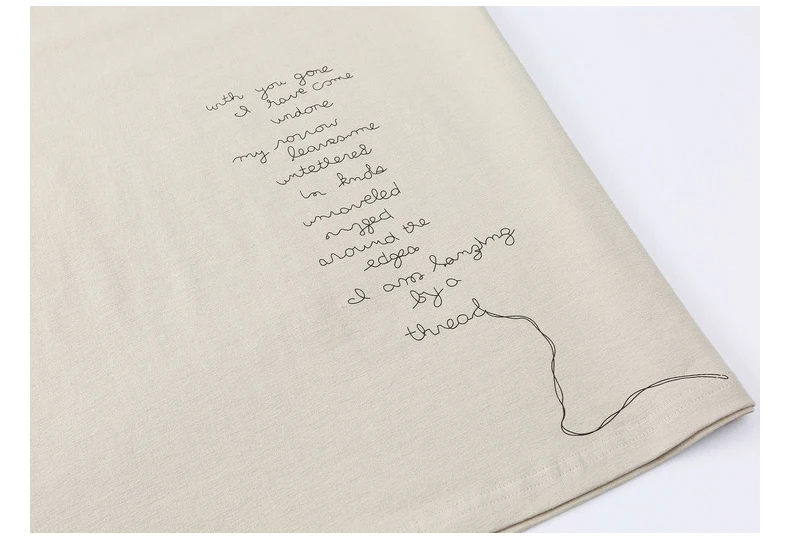 with you gone
I have come
undone
my sorrow
leaves me
untethered
in knots
unraveled
around the
edges
I am hanging
by a
thread